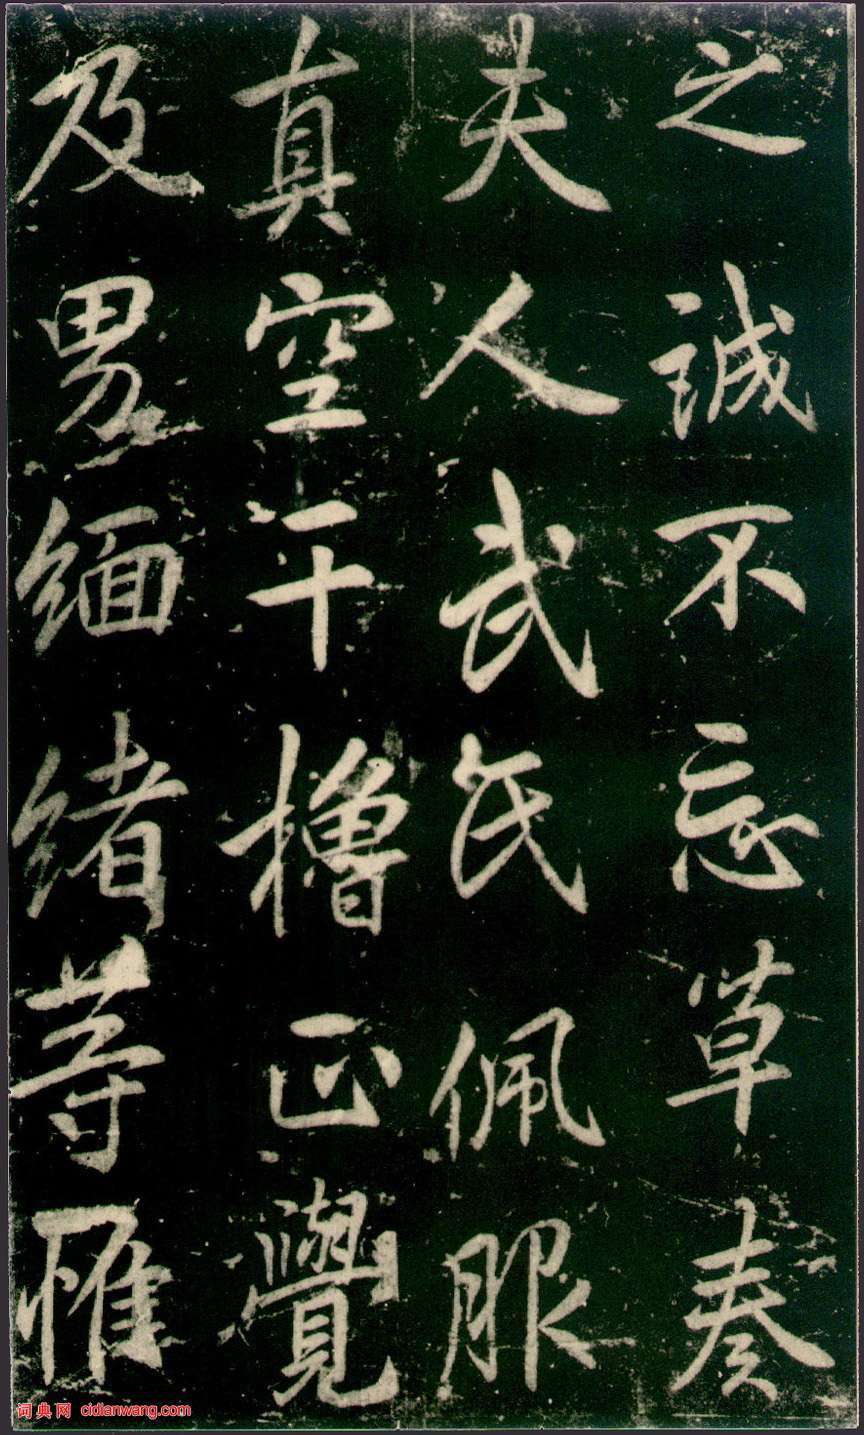 之誠不忘草奏
夫人武氏佩服
真空干櫓正覺
及男緬緒等罹
词典网 cidianwang.com